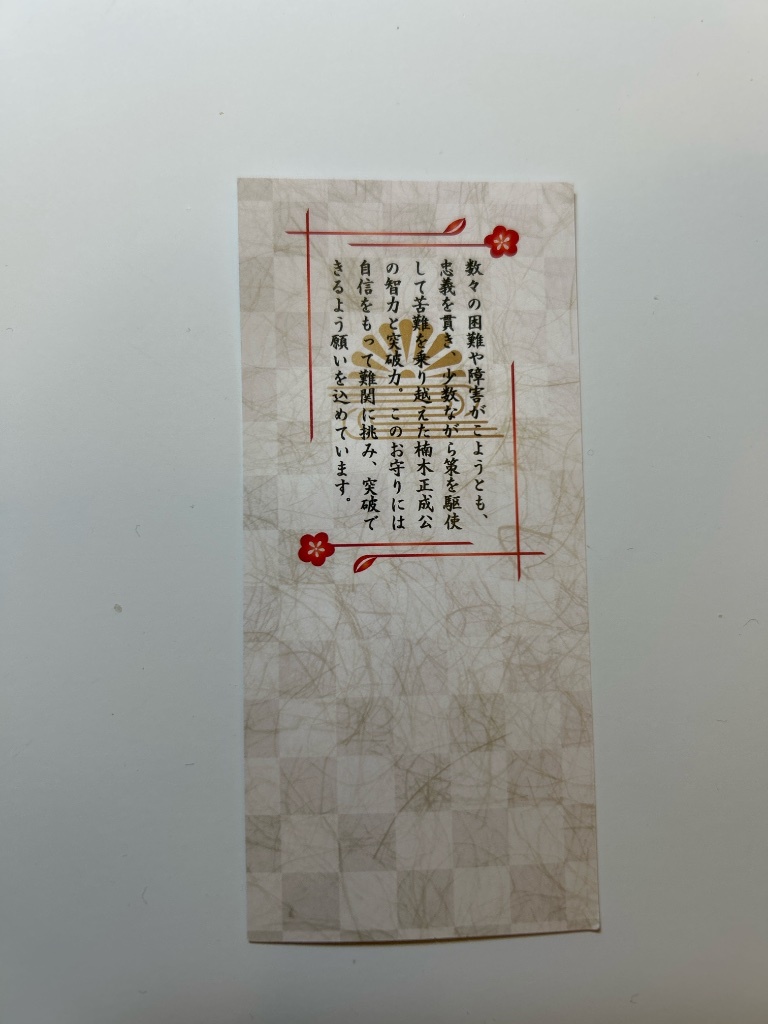 数々の困難や障害がこようとも、
忠義を貫き、少数ながら策を駆使
して苦難を乗り越えた楠木正成公
の智力と突破力。このお守りには
自信をもって難関に挑み、突破で
きるよう願いを込めています。